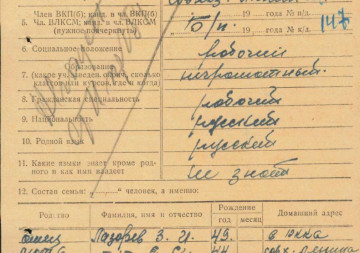 Член ВКП(б); канд. в чл. ВКП(б)
5. Член ВЛКСМ; канд. в чл. ВЛКСМ
(нужное подчеркнуть)
19 — года № к/п.
б/п. 19 — года № к/л. 147
6. Социальное положение рабочий
Образование
7. (какое уч. заведен. окончил, сколько классов или курсов, где и когда) неграмотный.
8. Гражданская специальность рабочий
9. Национальность русский
10. Родной язык русский
11. Какие языки знает кроме родного и как ими владеет не знает
12. Состав семьи: „ “ человек, а именно:
Родство Фамилия, имя и отчество Рождение год месяц Домашний адрес
отец Лазарев З. И.
совх. Ленина